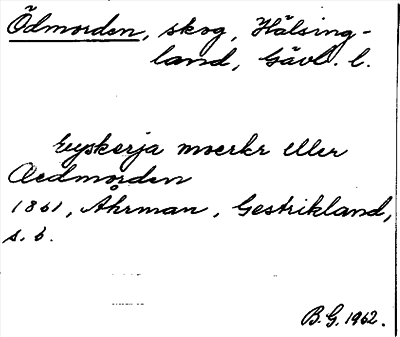 Ödmorden, skog, Hälsing-
land, Gävl. l.
Eyskerja moerkr eller
Aedmorden
1861, Ahrman, Gestrikland,
s. 6.
B.G. 1962.